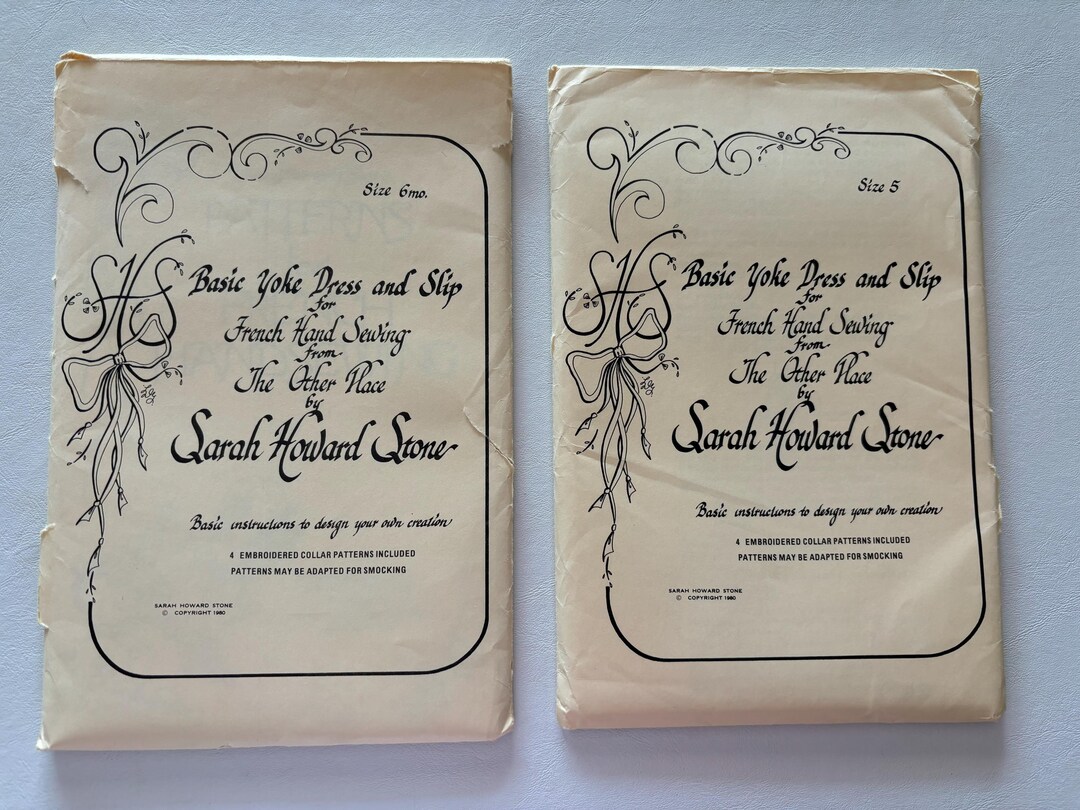 Size 6mo.
SHS
Basic Yoke Dress and Slip
for
French Hand Sewing
from
The Other Place
by
Sarah Howard Stone
Basic instructions to design your own creation
4 EMBROIDERED COLLAR PATTERNS INCLUDED
PATTERNS MAY BE ADAPTED FOR SMOCKING
SARAH HOWARD STONE
© COPYRIGHT 1980
Size 5
SHS
Basic Yoke Dress and Slip
for
French Hand Sewing
from
The Other Place
by
Sarah Howard Stone
Basic instructions to design your own creation
4 EMBROIDERED COLLAR PATTERNS INCLUDED
PATTERNS MAY BE ADAPTED FOR SMOCKING
SARAH HOWARD STONE
© COPYRIGHT 1980